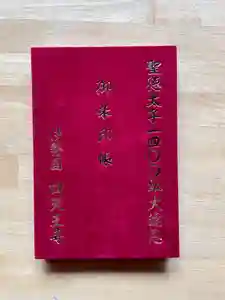 聖徳太子一四〇〇年大遠忌
御朱印帳
四天王寺